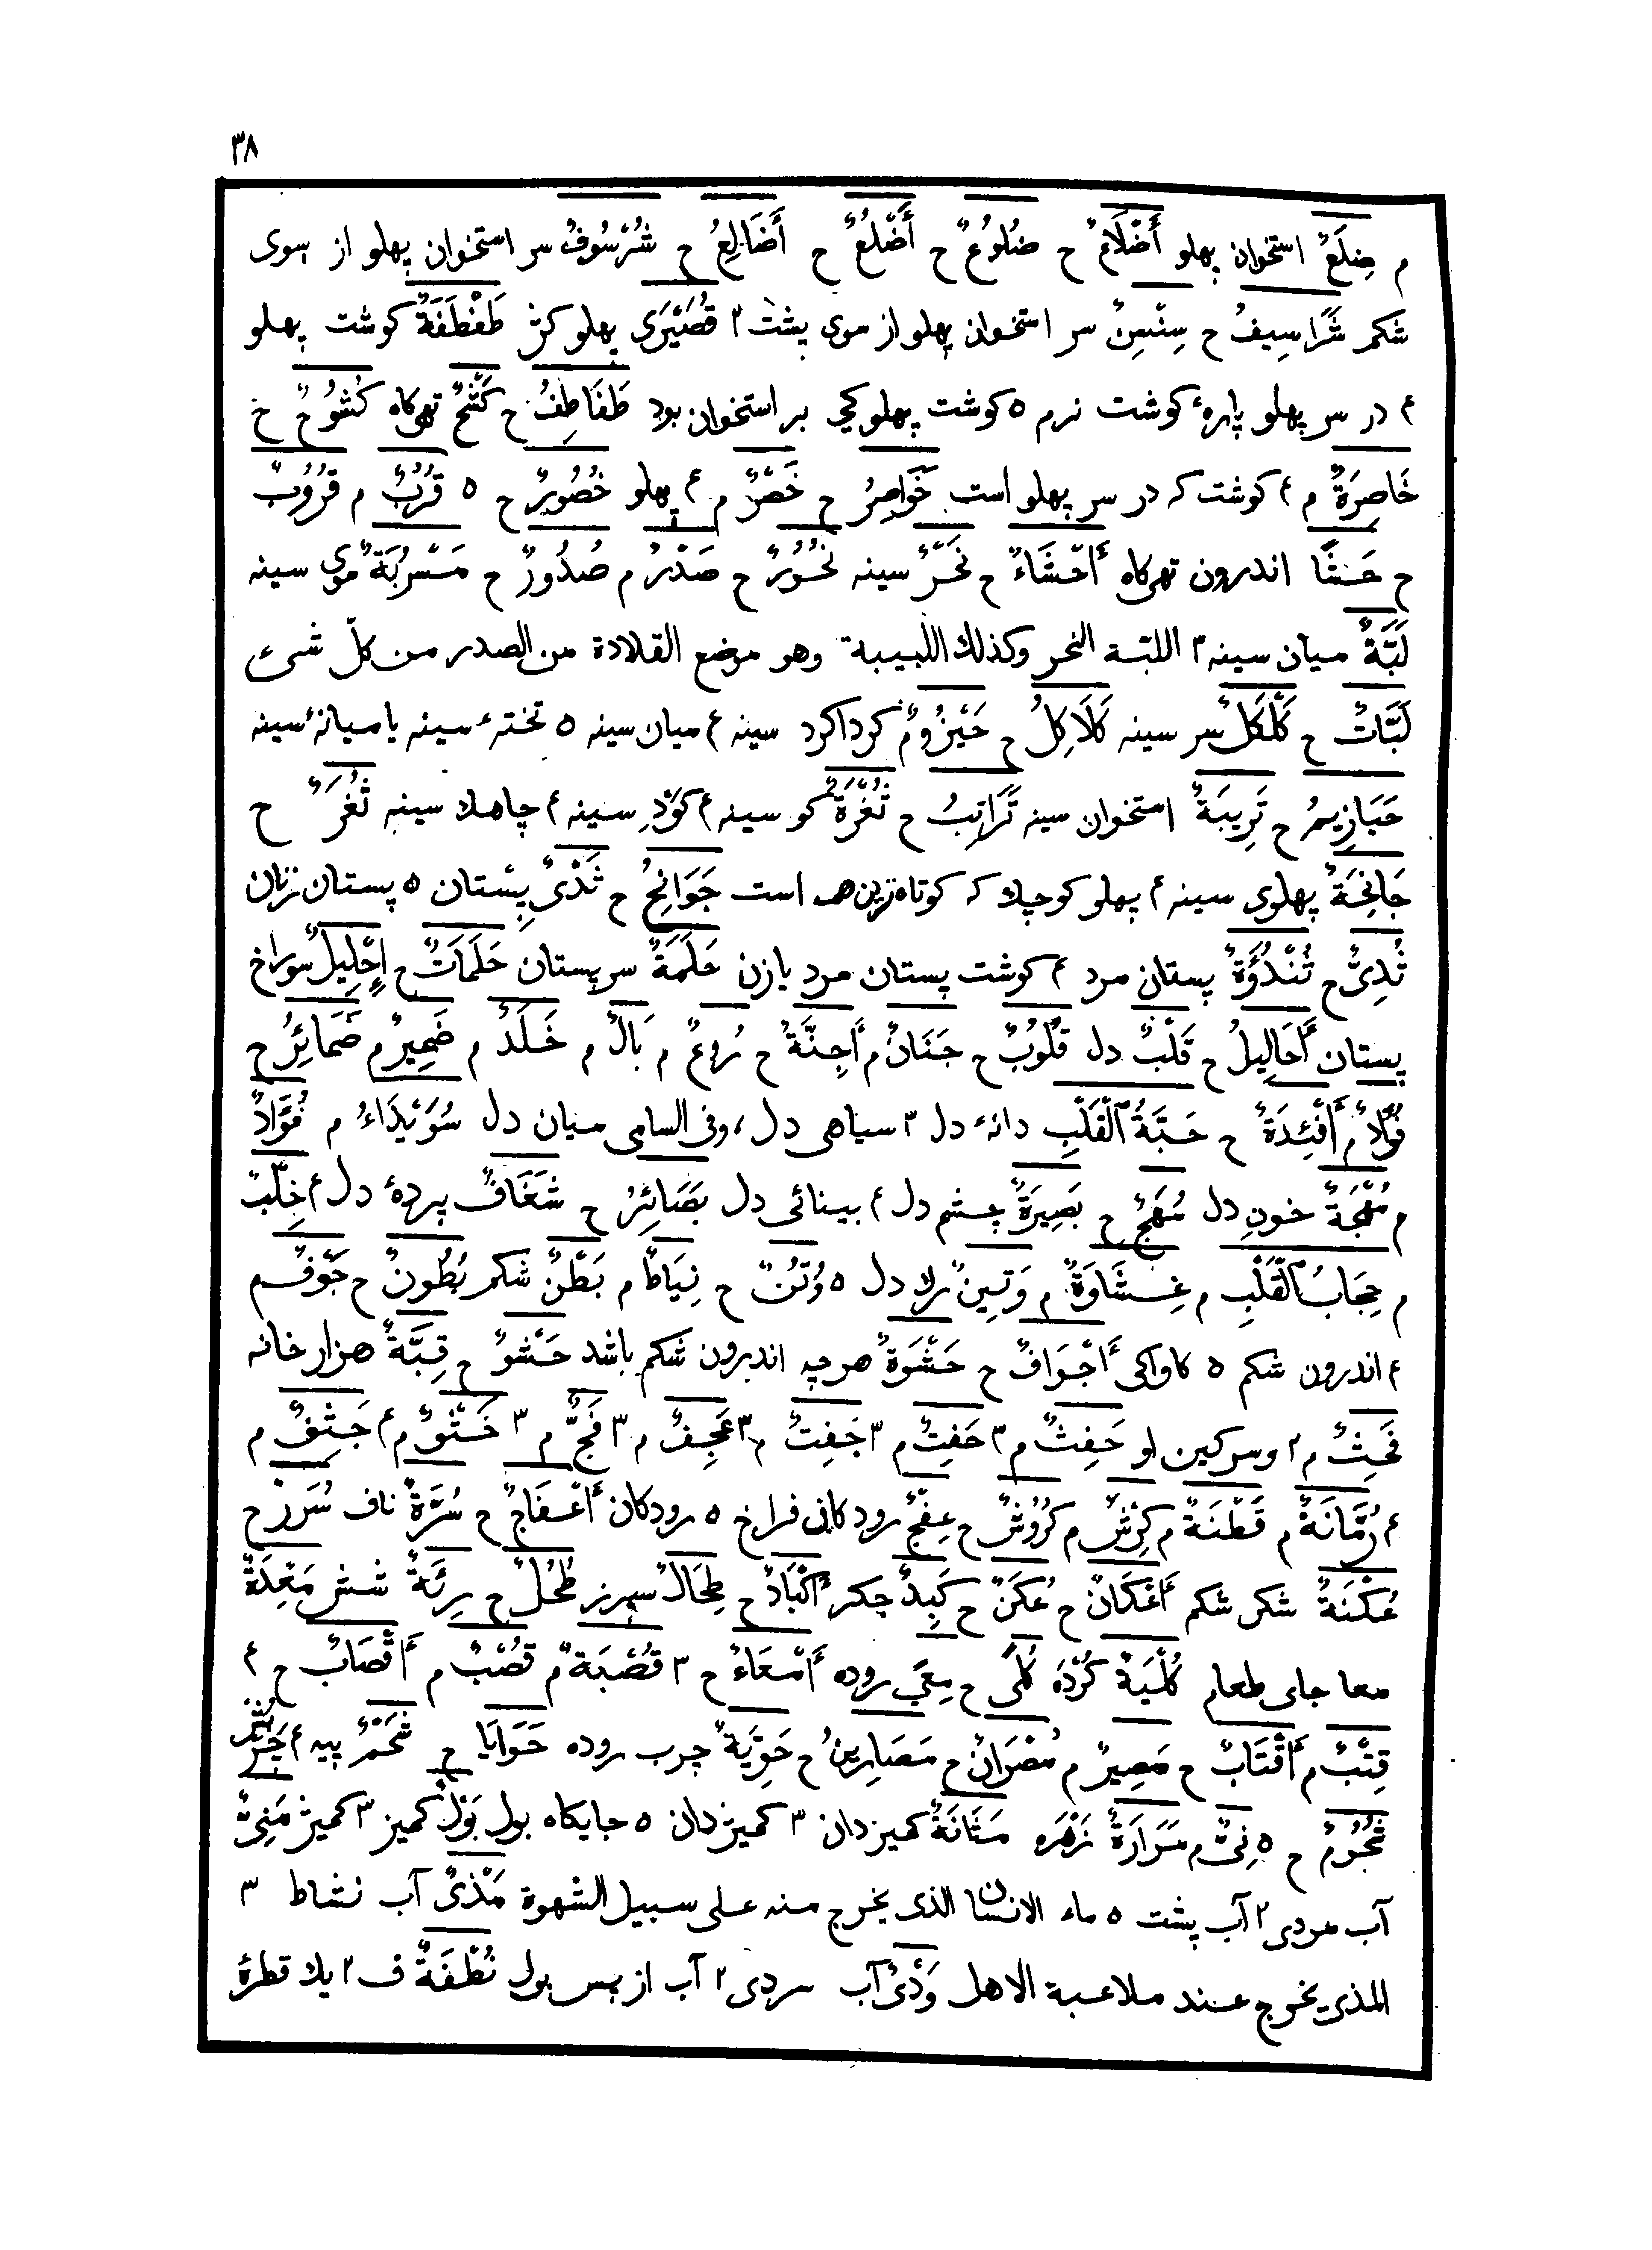 ٣٨
م ضِلَعٌ استخوان پهلو أَضْلَاعٌ ح ضُلُوعٌ ح أَضْلُعٌ ح أَضَالِعُ ح شُرْسُوفٌ سر استخوان پهلو از سوی
شکم شَرَاسِيفُ ح سِنْسِنٌ سر استخوان پهلو از سوی پشت ٣ قُصَيْرَى پهلو کژ طَفْطَفَةٌ کوشت پهلو
۴ در سر پهلو پارهٔ کوشت نرم ٥ کوشت پهلو کی بر استخوان بود طَفَاطِفُ ح كَشْحٌ تهیکاه كُشُوحٌ ح
خَاصِرَةٌ م ۴ کوشت که در سر پهلو است خَوَاصِرُ ح خَصْرٌ م ۴ پهلو خُصُورٌ ح ٥ قُرُبٌ م قُرُوبٌ
ح حَشًا اندرون تهیکاه أَحْشَاءٌ ح نَحْرٌ سینه نُحُورٌ ح صَدْرٌ م صُدُورٌ ح مَسْرُبَةٌ موی سینه
لَبَّةٌ میان سینه ٣ اللبّة النحر وكذلك اللبيبة وهو موضع القلادة من الصدر من كلّ شیء
لَبَّاتٌ ح كَلْكَلٌ سر سینه كَلَاكِلُ ح حَيْزُومٌ کرداکرد سینه ۴ میان سینه ٥ تختهٔ سینه یا میانهٔ سینه
حَيَازِيمُ ح تَرِيبَةٌ استخوان سینه تَرَائِبُ ح ثُغْرَةٌ کو سینه ۴ کوَدِ سینه ۴ چاهك سینه ثُغَرٌ ح
جَانِحَةٌ پهلوی سینه ۴ پهلو کوچك که کوتاه‌ترین همه است جَوَانِحُ ح ثَدْیٌ پِستان ٥ پستان زنان
ثُدِیٌّ ح ثُنْدُؤَةٌ پستان مرد ۴ کوشت پستان مرد یا زن حَلَمَةٌ سر پستان حَلَمَاتٌ ح إِحْلِيلٌ سوراخ
پستان أَحَالِيلُ ح قَلْبٌ دل قُلُوبٌ ح جَنَانٌ م أَجِنَّةٌ ح رُوعٌ م بَالٌ م خَلَدٌ م ضَمِيرٌ م ضَمَائِرُ ح
م أَفْئِدَةٌ ح حَبَّةُ ٱلْقَلْبِ دانهٔ دل ٣ سیاهی دل، وفی السامی میان دل سُوَيْدَاءُ م فُؤَادٌ
م مُهْجَةٌ خونِ دل مُهَجٌ ح بَصِيرَةٌ چشم دل ۴ بینائی دل بَصَائِرُ ح شَغَافٌ پردهٔ دل ۴ خِلْبٌ
م حِجَابُ ٱلْقَلْبِ م غِشَاوَةٌ م وَتِينٌ رك دل ٥ وُتُنٌ ح نِيَاطٌ م بَطْنٌ شکم بُطُونٌ ح جَوْفٌ م
۴ اندرون شکم ٥ کاواکی أَجْوَافٌ ح حَشْوَةٌ هر چه اندرون شکم باشد حَشْوٌ ح قِبَّةٌ هزار خانه
فَحِثٌ م ٢ وسرکین او حَفِثٌ م ٣ حَفِتٌ م ٣ خَفِتٌ م ٣ عَجِفٌ م ٣ فَجٌّ م ٣ م ۴ م
۴ رُمَّانَةٌ م قَطْنَةٌ م كِرْشٌ م كُرُوشٌ ح عِفْجٌ رودکانی فراخ ٥ رودکان أَعْفَاجٌ ح سُرَّةٌ ناف سُرَرٌ ح
عُكْنَةٌ شکن شکم أَعْكَانٌ ح عُكَنٌ ح كَبِدٌ جکر أَكْبَادٌ ح طِحَالٌ سپرز طُحُلٌ ح رِئَةٌ شش مَعِدَةٌ
معا جای طعام كُلْيَةٌ كُرْدَه كُلًى ح مِعًى روده أَمْعَاءٌ ح ٣ قُصْبَةٌ م قُصْبٌ م أَقْصَابٌ ح ۴
قِتْبٌ م أَقْتَابٌ ح مَصِيرٌ م مُصْرَانٌ ح مَصَارِينُ ح حَوِيَّةٌ چرب روده حَوَايَا ح شَحْمٌ پیه ۴
شُحُومٌ ح ٥ نِیٌّ م مَرَارَةٌ زَهْرَه مَثَانَةٌ کمیزدان ٣ کمیژدان ٥ جایکاه بول بَوْلٌ کمیز ٣ کمیژ مَنِیٌّ
آب مردی ٢ آب پشت ٥ ماء الانسان الذی یخرج منه علی سبیل الشهوة مَذْیٌ آب نشاط ٣
المذی یخرج عند ملاعبة الاهل وَدْیٌ آب سردی ٢ آب از پس بول نُطْفَةٌ ف ٢ یك قطرهٔ